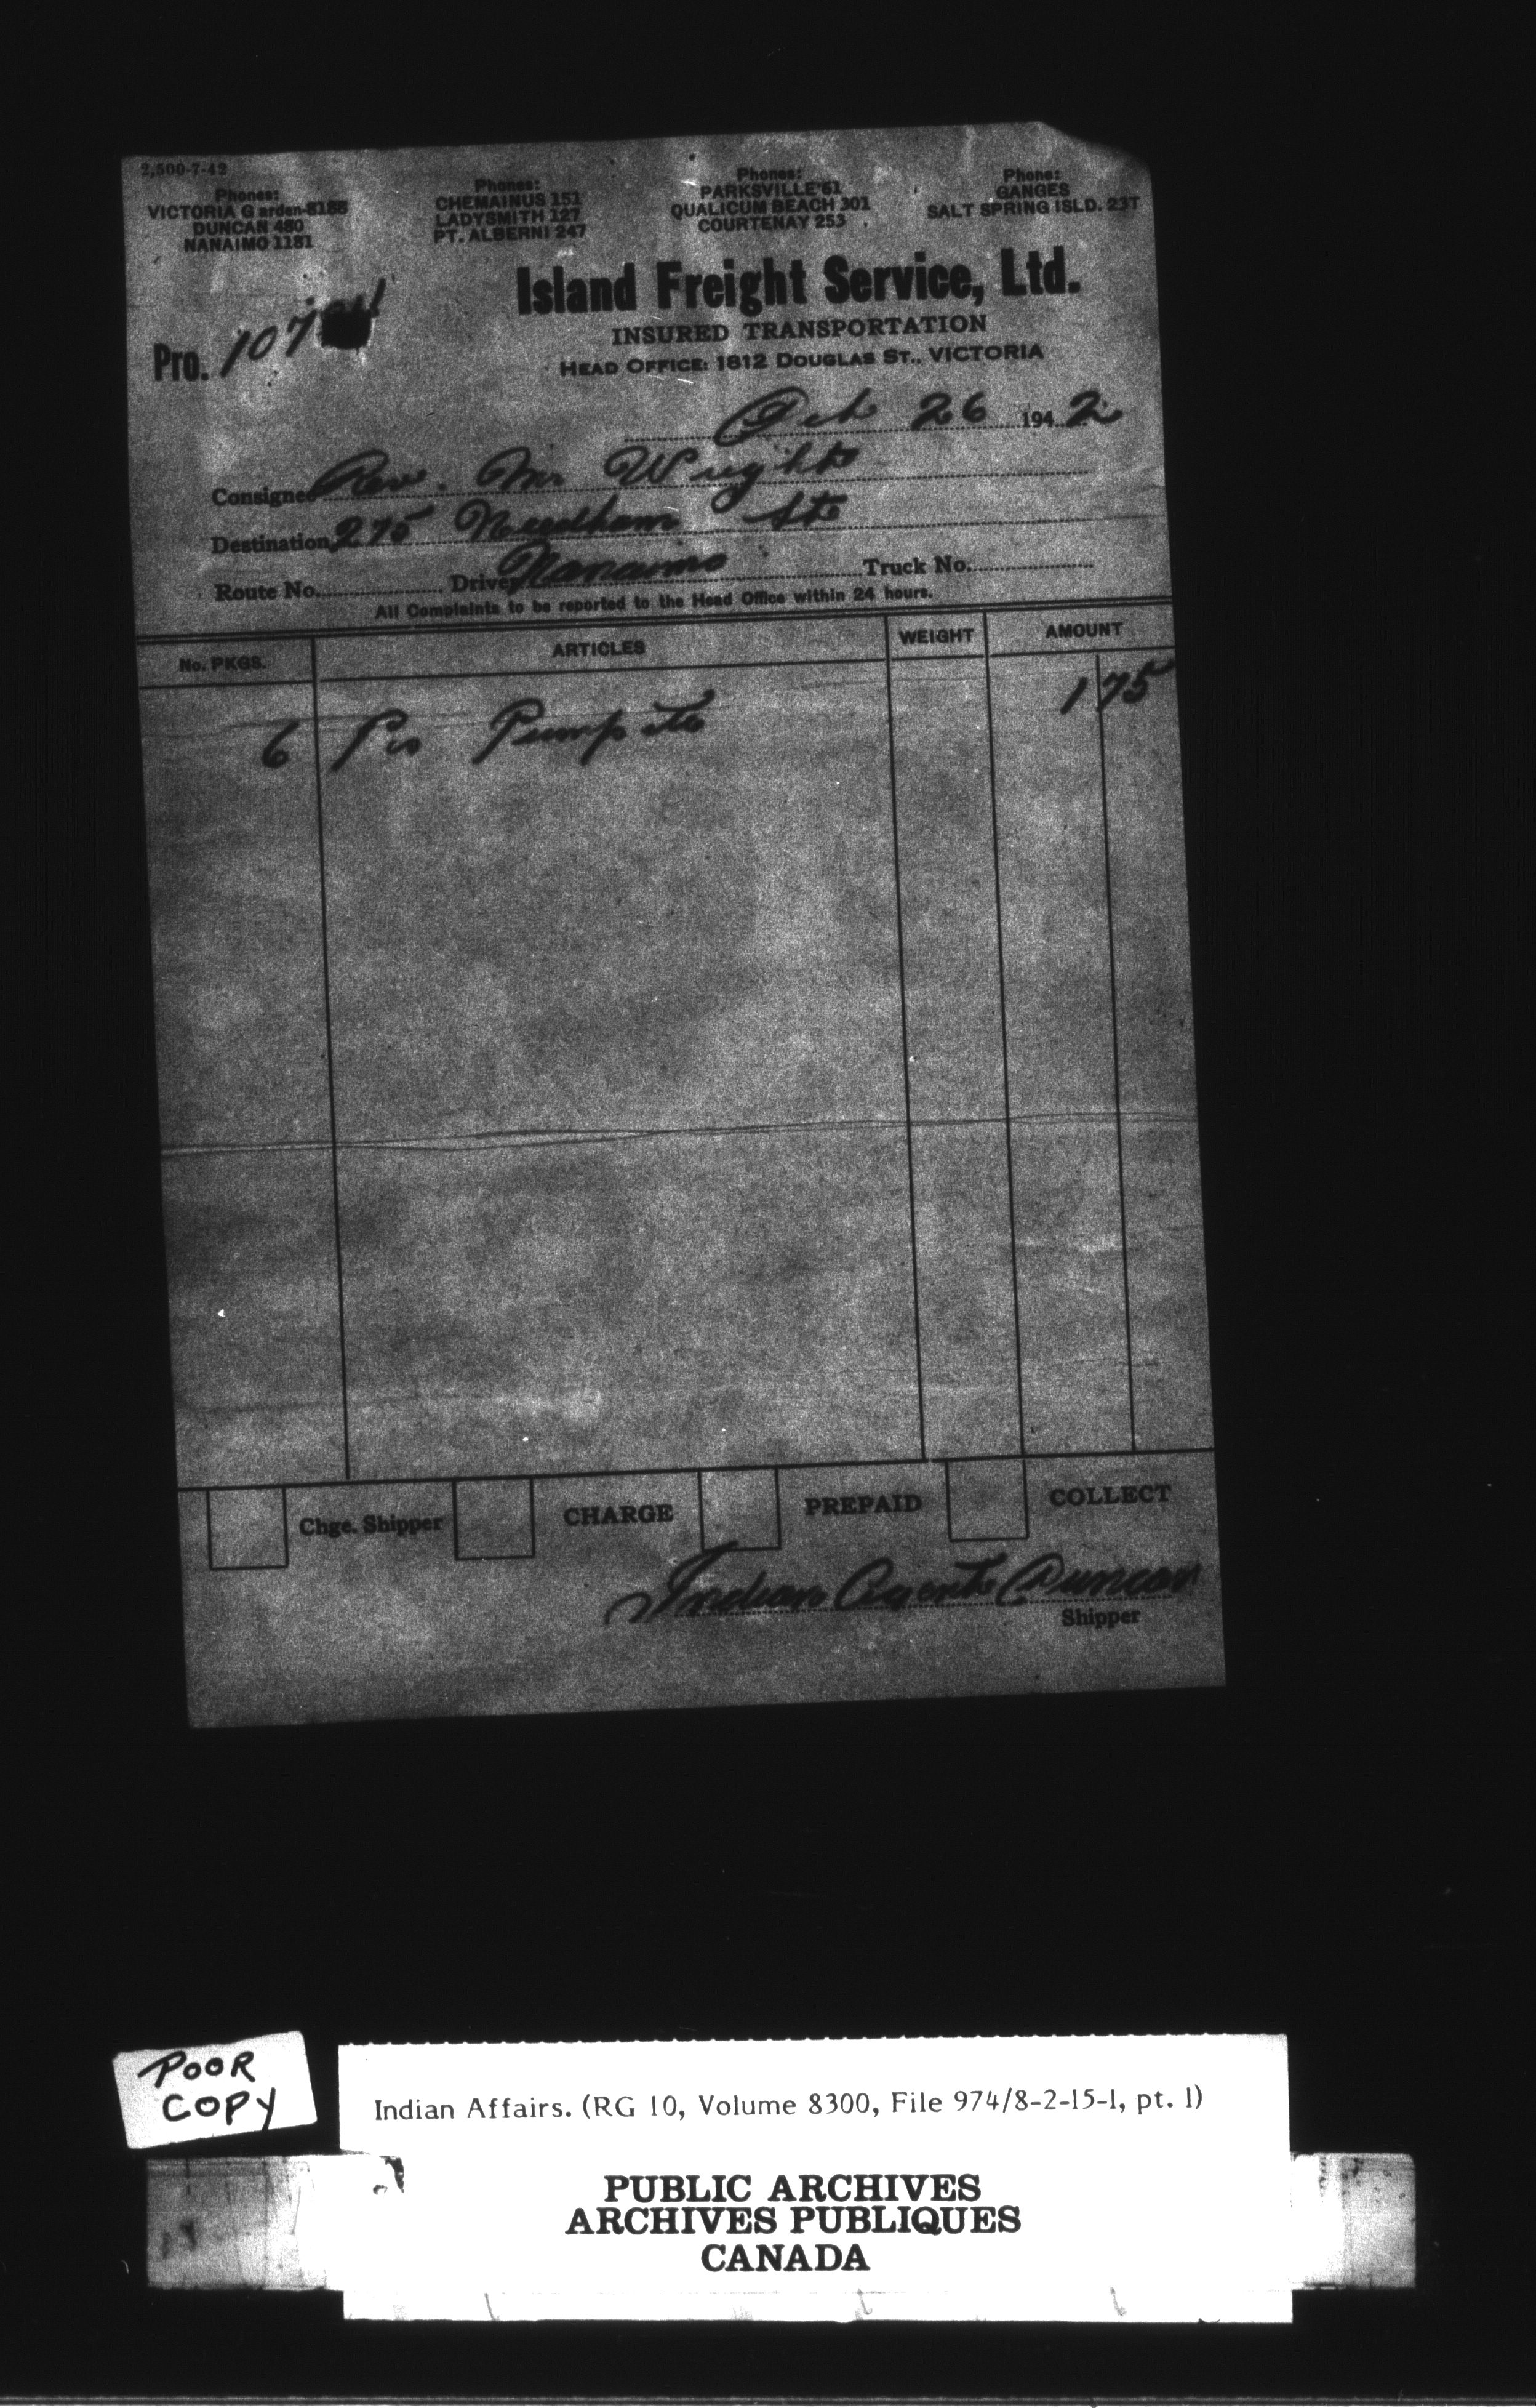 2,500-7-42
Phones:
VICTORIA G arden-8188
DUNCAN 480
NANAIMO 1181
Phones:
CHEMAINUS 151
LADYSMITH 127
PT. ALBERNI 247
Phones:
PARKSVILLE 61
QUALICUM BEACH 301
COURTENAY 253
Phone:
GANGES
SALT SPRING ISLD. 23T
Island Freight Service, Ltd.
INSURED TRANSPORTATION
HEAD OFFICE: 1812 DOUGLAS ST., VICTORIA
Pro. 107
Oct 26 1942
Consignee Rev. Mr Wright
Destination 275 Needham St
Route No. Driver Nanaimo Truck No.
All Complaints to be reported to the Head Office within 24 hours.
No. PKGS. ARTICLES WEIGHT AMOUNT
6 Pcs Pump Etc 1 75
Chge. Shipper CHARGE PREPAID COLLECT
Indian Agent Duncan
Shipper
POOR
COPY
Indian Affairs. (RG 10, Volume 8300, File 974/8-2-15-1, pt. 1)
PUBLIC ARCHIVES
ARCHIVES PUBLIQUES
CANADA